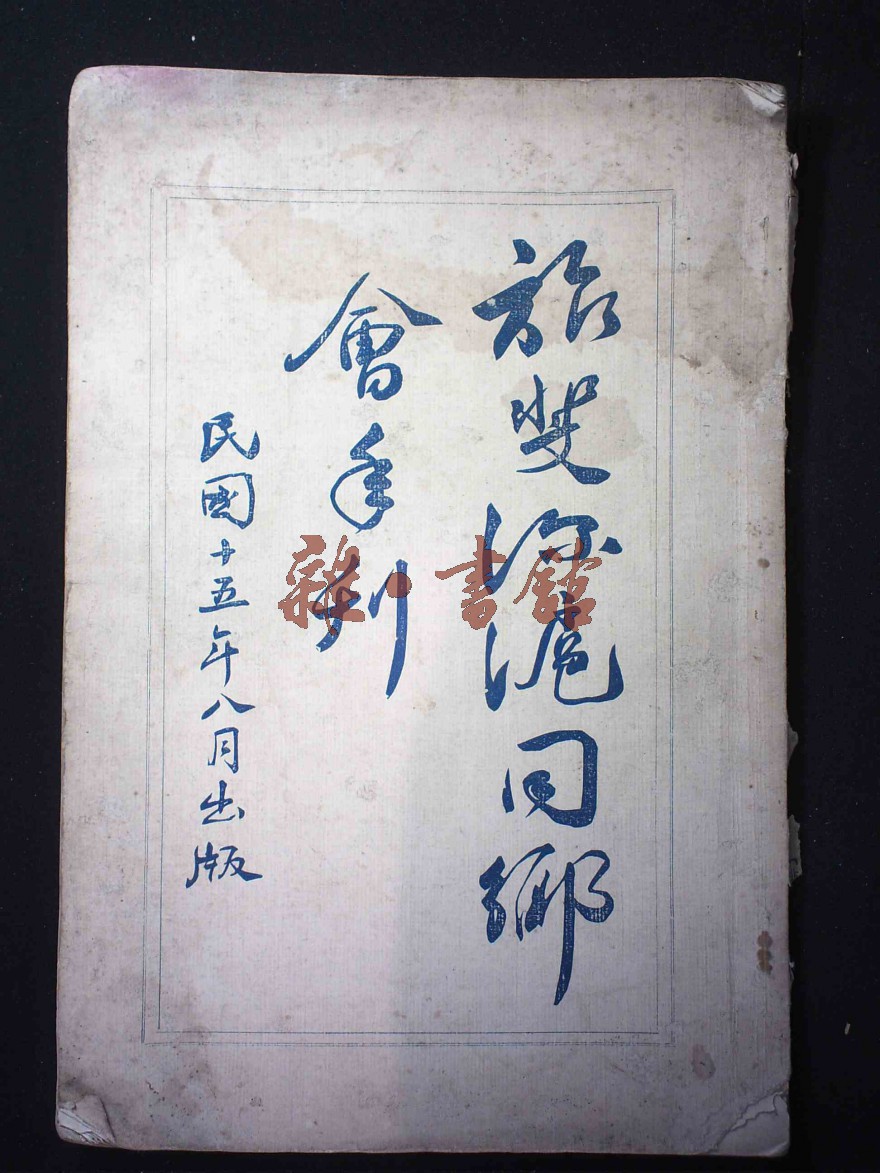 旅斐深滬同鄉
會年刊
民國十五年八月出版
雜·書館